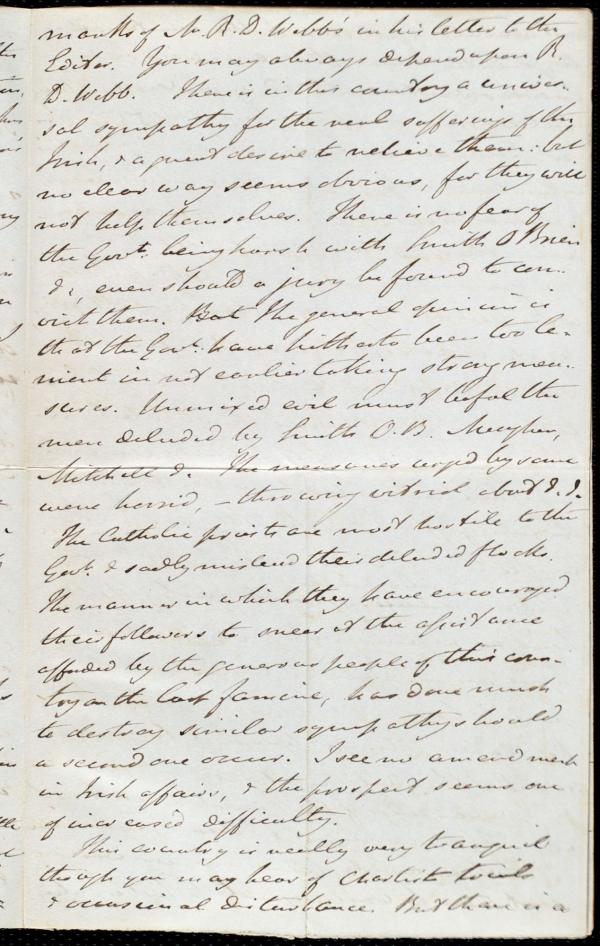 marks of Mr. R. D. Webb's in his letter to the
Editor. You may always depend upon R.
D. Webb. There is in this country a univer-
sal sympathy for the real sufferings of the
Irish, & a great desire to relieve them: but
no clear way seems obvious, for they will
not help themselves. There is no fear of
the Govt. being harsh with Smith O'Brien
&c, even should a jury be found to con-
vict them. But the general opinion is
that the Govt. have hitherto been too le-
nient in not earlier taking strong mea-
sures. Unmixed evil must befal the
men deluded by Smith O.B. Meagher,
Mitchell &c. The measures urged by some
were horrid, – throwing vitriol about &c.
The Catholic priests are most hostile to the
Govt. & sadly mislead their deluded flocks.
The manner in which they have encouraged
their followers to sneer at the assistance
afforded by the generous people of this coun-
try in the last famine, has done much
to destroy similar sympathy should
a second one occur. I see no amendment
in Irish affairs, & the prospect seems one
of increased difficulty.
This country is really very tranquil
though you may hear of Chartist trials
& occasional disturbance. But there is a